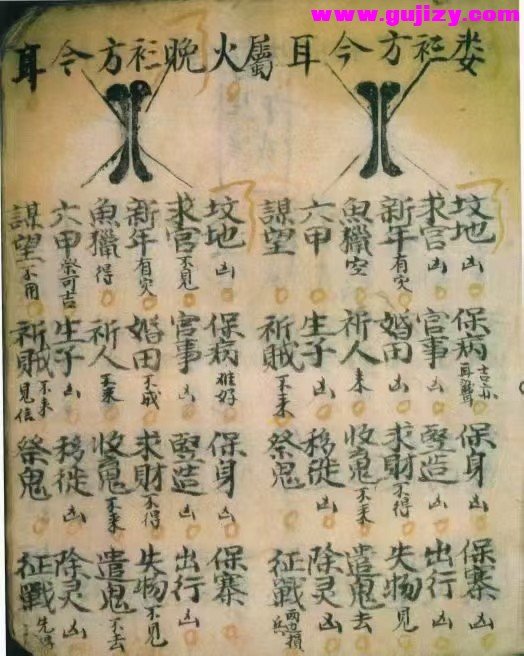 www.gujizy.com
娄方今耳屬火晚方今耳
坟地凶 保病 保身凶 保寨凶
求官凶 官事凶 竪造凶 出行凶
新年有灾 婚田凶 求財不得 失物見
魚獵空 祈人来 收鬼不来 遣鬼去
六甲 生子凶 移徙凶 除灵凶
謀望 祈賊不来 祭鬼 征戰損兵
坟地凶 保病难好 保身凶 保寨
求官不見 官事凶 竪造凶 出行凶
新年有灾 婚田不成 求財不得 失物不見
魚獵得 祈人不来 收鬼不来 遣鬼不去
六甲祭可吉 生子凶 移徙凶 除灵凶
謀望不用 祈賊不来見信 祭鬼 征戰先